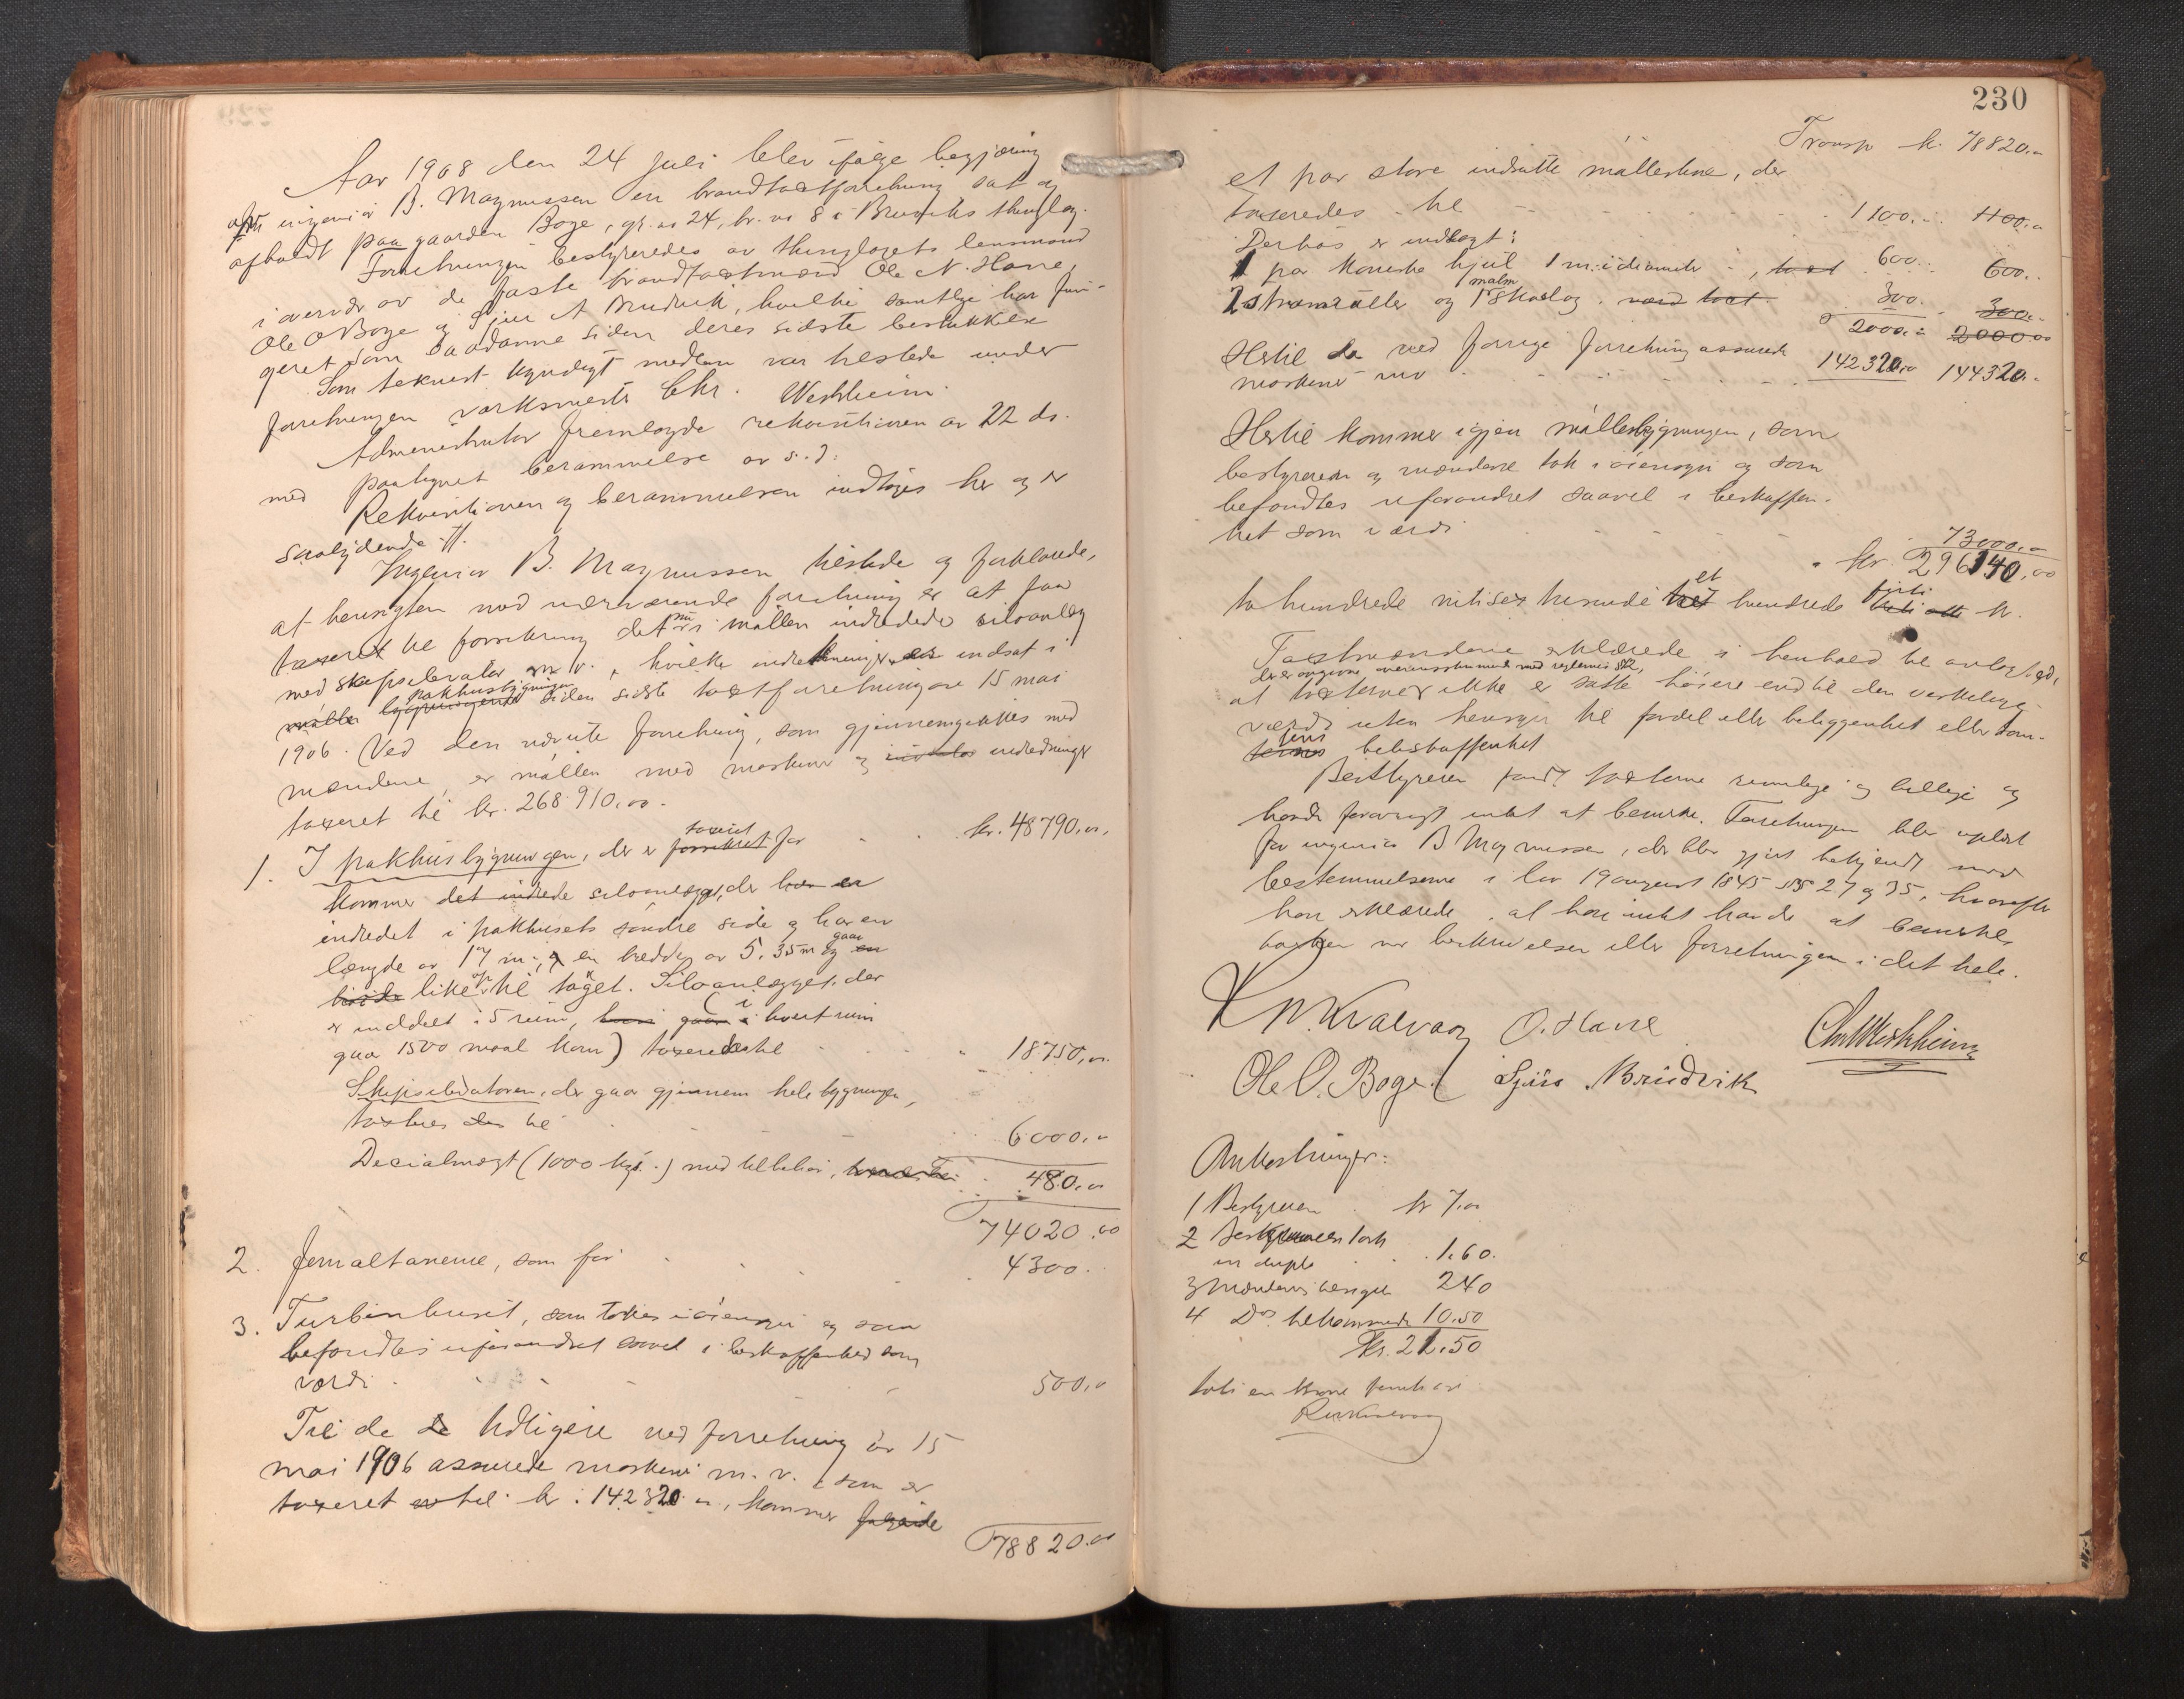 Aar 1908 den 24 juli blev ifølge begjæring
av ingeniør B. Magnussen en brandtaxtforretning sat og
afholdt paa gaarden Boge, gr. no 24, br. no 8 i Bruviks thinglag.
Forretningen bestyreredes av thinglagets lensmand
i overvær av de faste brandtaxtmænd Ole N. Hane,
Ole O Boge og Sjur A Bruvik, hvilke samtlige har fun-
geret som saadanne siden deres sidste beskikkelse
Som teknisk kyndigt medlem var tilstede under
forretningen værksmester Chr. Westrheim.
Administrator fremlagde rekvisitionen av 22 ds.
med paategnet berammelse av s. d.
Rekvisitionen og berammelsen indtages her og er
saalydende //.
Ingeniør B. Magnussen tilstede og forklarede,
at hensigten med nærværende forretning er at faa
taxeret til forsikring det nu i møllen indredede siloanlæg
med skipselevator m. v., hvilke indretninger er indsat i
møllen bygningerne pakhusbygningen siden sidste taxtforretning av 15 mai
1906. Ved den nævnte forretning, som gjennemgikkes med
mændene, er møllen med maskiner og indredninger
taxeret til kr. 268.910,00.
1. I pakhusbygningen, der er forsikret taxeret for kr. 48790,00,
kommer det indrede siloanlæg, der har en
indredet i pakhusets søndre side og har en
længde av 17 m., og en bredde av 5,35 m og en gaar
høide like op til taget. Siloanlægget, der
er inddelt i 5 rum, (i hvert rum
gaar 1500 maal korn) taxeredes til 18750,00.
Skipselevatoren, der gaar gjennem hele bygningen,
taxeres til 6000,00
Decialvægt (1000 kgs.) med tilbehør, 480,00
74020,00
2. Jernaltanerne, som før 4300.
3. Turbinhuset, som toges i øiensyn og som
befandtes uforandret saavel i beskaffenhed som
værdi 500,00
Til de tidligere ved forretning av 15
mai 1906 assurerede maskiner m. v., som er
taxeret til kr. 142320,00, kommer følgende
78820,00
230
Transp kr. 78820,00
et par store indsatte møllestene, der
taxeredes til 1100,00 1100,00
Derhos er indlagt:
1 par koniske hjul 1 m. i diameter, taxt 600.. 600..
2 stramruller og 1 malm skaalog. værd taxt 300. 300.-
2000,00 2000,00
Hertil de ved forrige forretning assurerede
maskiner m v 142320,00 144320,00
Hertil kommer igjen møllebygningen, som
bestyreren og mændene tok i øiensyn og som
befandtes uforandret saavel i beskaffen-
het som værdi 73000,00
kr. 296140,00
to hundrede nitisex tusinde et hundrede firti kr.
Taxtmændene erklærede i henhold til avlagt ed,
der er avgivne overensstemmende med reglernes § 12,
at taxterne ikke er satte høiere end til den verkelige
værdi uten hensyn til fordel eller beliggenhet eller tom-
tens beskaffenhet
Bestyreren fandt taxterne rimelige og billige og
havde forøvrigt intet at bemerke. Forretningen blev oplæst
for ingeniør B Magnussen, der blev gjort bekjendt med
bestemmelserne i lov 19 august 1845 §§ 27 og 35, hvorefter
han erklærede, at han intet havde at bemerke
hverken ved beskrivelsen eller forretningen i det hele.
O. Hane Chr Westrheim
Ole O. Boge Sjur Bruvik
Omkostninger:
1 Bestyreren kr 7,00
2 Beskrivelsen
in duplo 1.60.
3 Mændenes 2 40
4 Do 10.50
Kr. 21.50
toti en krone femti øre